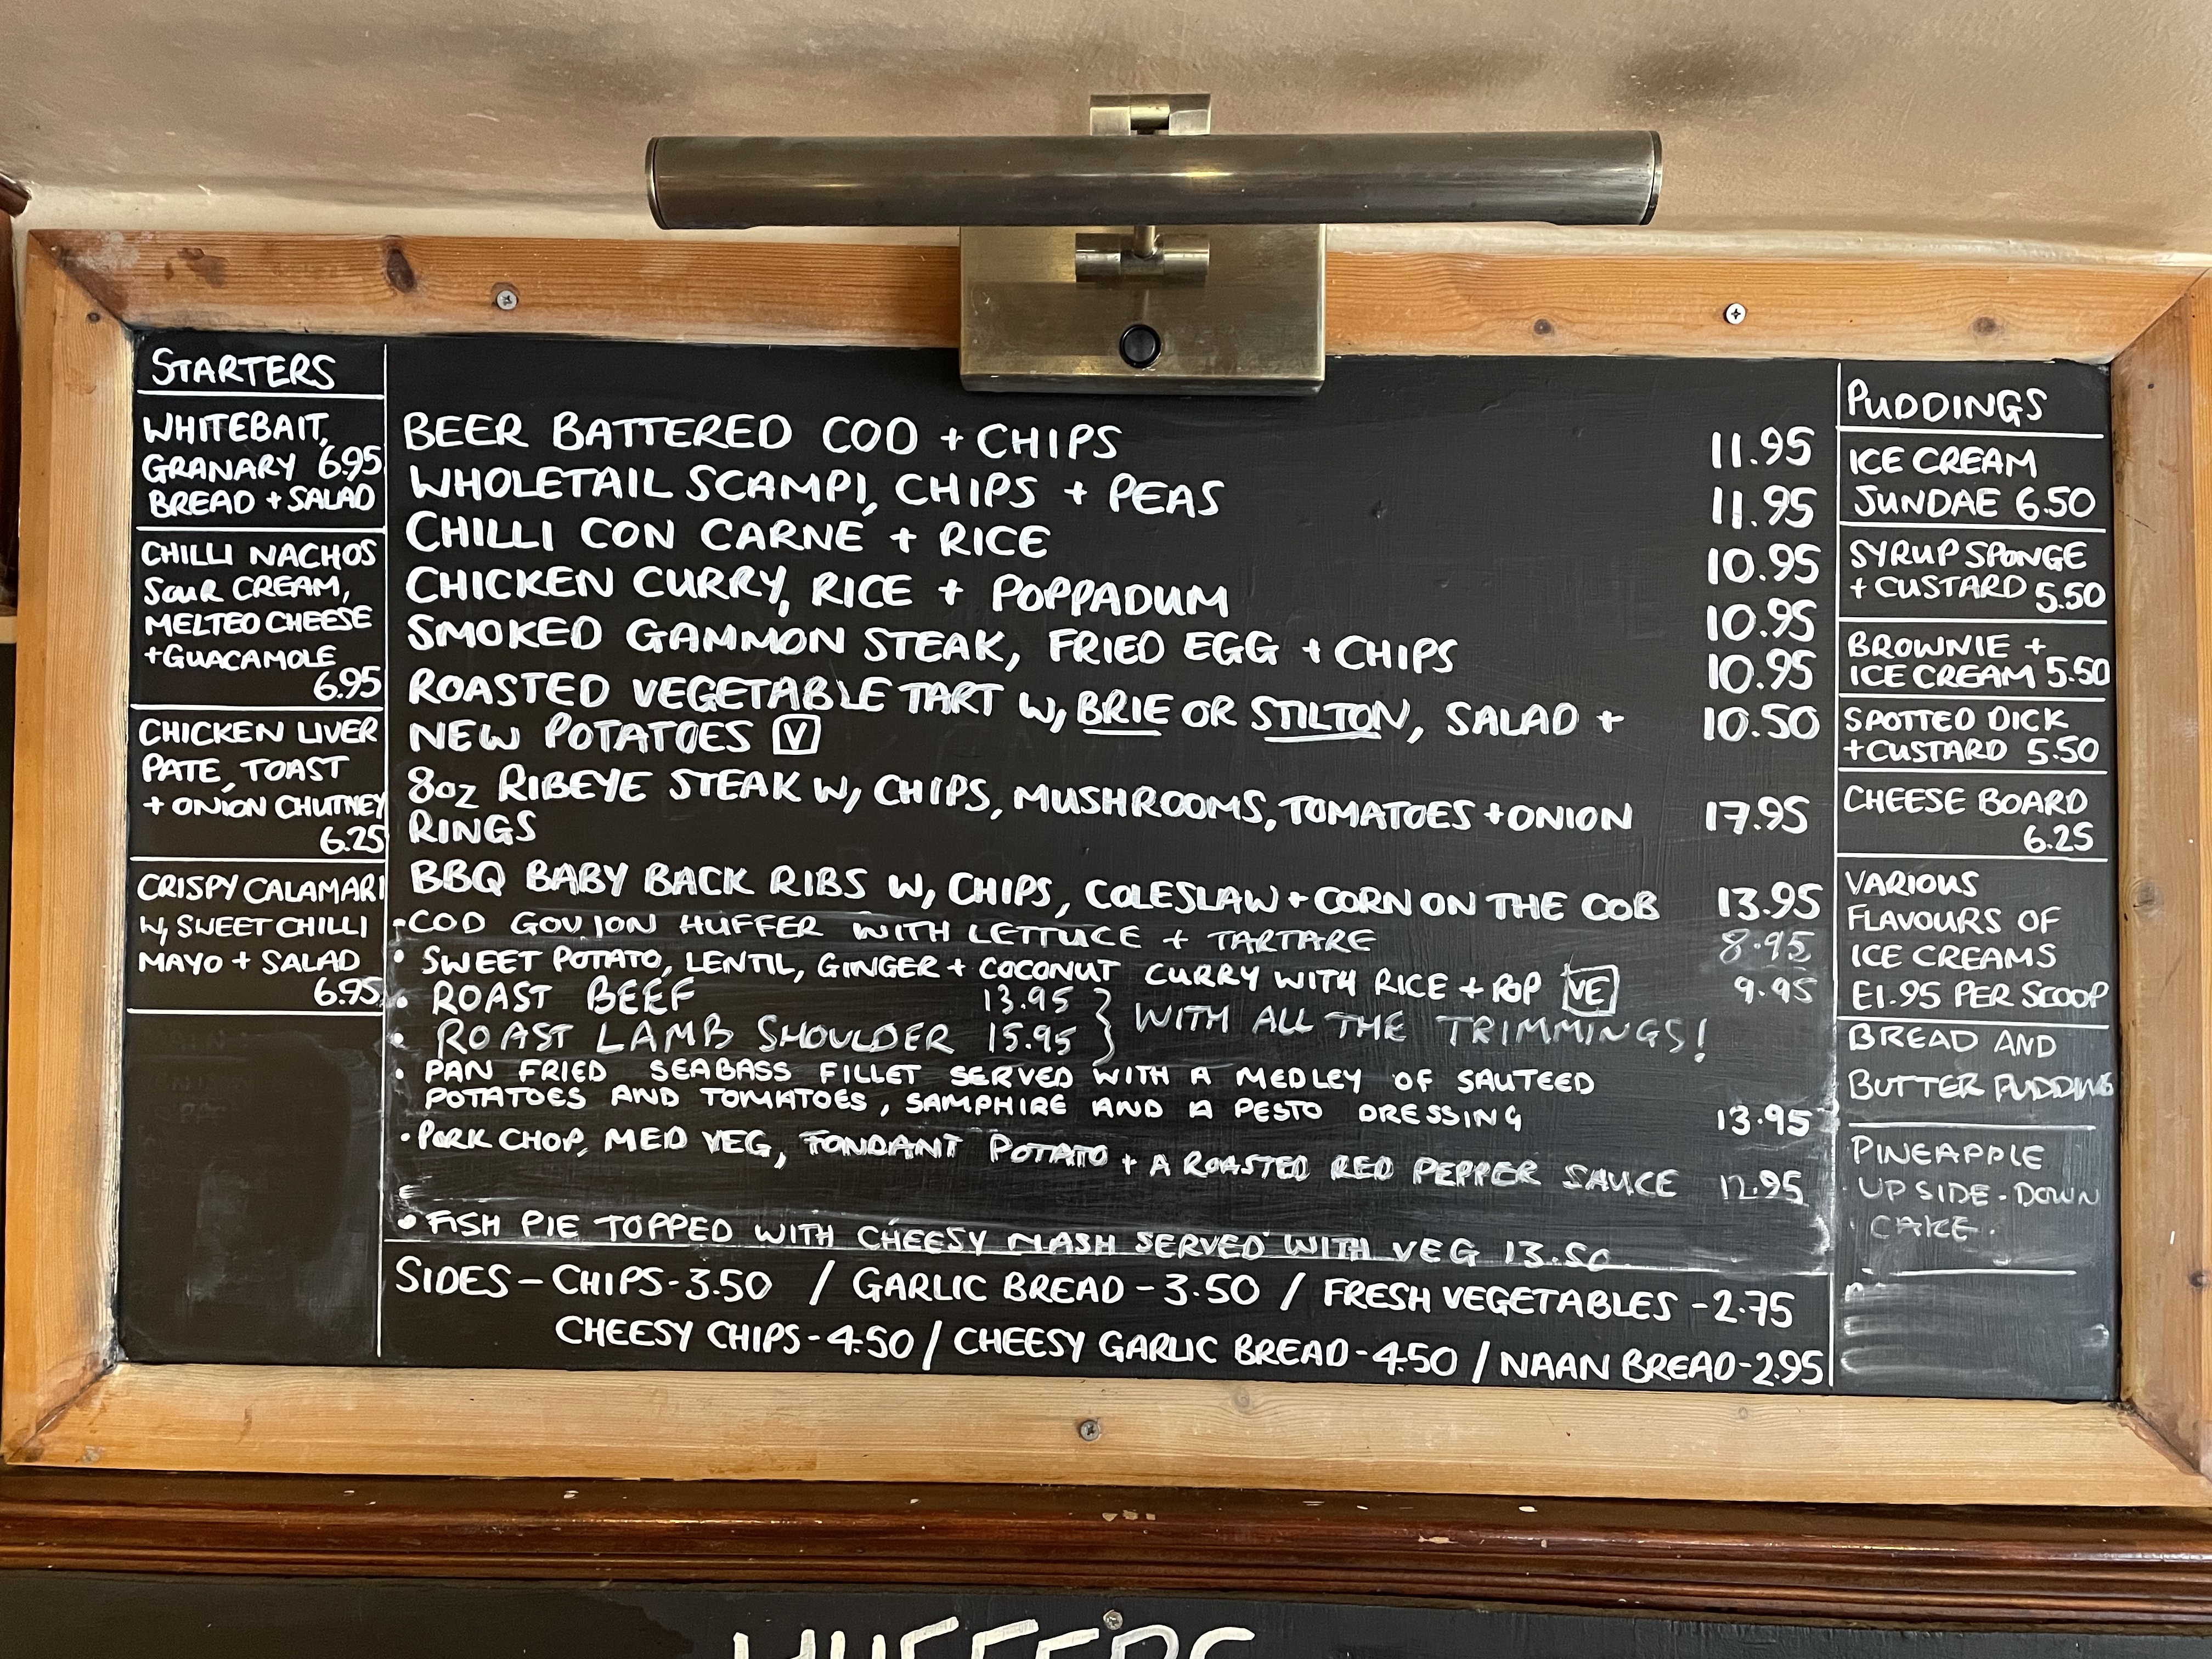 STARTERS
WHITEBAIT,
GRANARY 6.95
BREAD + SALAD
CHILLI NACHOS
SOUR CREAM,
MELTED CHEESE
+GUACAMOLE
6.95
CHICKEN LIVER
PATE, TOAST
+ ONION CHUTNEY
6.25
CRISPY CALAMARI
W, SWEET CHILLI
MAYO + SALAD
6.95
BEER BATTERED COD + CHIPS 11.95
WHOLETAIL SCAMPI, CHIPS + PEAS 11.95
CHILLI CON CARNE + RICE 10.95
CHICKEN CURRY, RICE + POPPADUM 10.95
SMOKED GAMMON STEAK, FRIED EGG + CHIPS 10.95
ROASTED VEGETABLE TART W, BRIE OR STILTON, SALAD + 10.50
NEW POTATOES V
8oz RIBEYE STEAK W, CHIPS, MUSHROOMS, TOMATOES + ONION 17.95
RINGS
BBQ BABY BACK RIBS W, CHIPS, COLESLAW + CORN ON THE COB 13.95
• COD GOUJON HUFFER WITH LETTUCE + TARTARE 8.95
• SWEET POTATO, LENTIL, GINGER + COCONUT CURRY WITH RICE + POP VE 9.95
• ROAST BEEF 13.95
• ROAST LAMB SHOULDER 15.95 } WITH ALL THE TRIMMINGS!
• PAN FRIED SEABASS FILLET SERVED WITH A MEDLEY OF SAUTEED
POTATOES AND TOMATOES, SAMPHIRE AND A PESTO DRESSING 13.95
• PORK CHOP, MED VEG, FONDANT POTATO + A ROASTED RED PEPPER SAUCE 12.95
• FISH PIE TOPPED WITH CHEESY MASH SERVED WITH VEG 13.50
SIDES – CHIPS - 3.50 / GARLIC BREAD - 3.50 / FRESH VEGETABLES - 2.75
CHEESY CHIPS - 4.50 / CHEESY GARLIC BREAD - 4.50 / NAAN BREAD - 2.95
PUDDINGS
ICE CREAM
SUNDAE 6.50
SYRUP SPONGE
+ CUSTARD 5.50
BROWNIE +
ICE CREAM 5.50
SPOTTED DICK
+ CUSTARD 5.50
CHEESE BOARD
6.25
VARIOUS
FLAVOURS OF
ICE CREAMS
£1.95 PER SCOOP
BREAD AND
BUTTER PUDDING
PINEAPPLE
UPSIDE-DOWN
CAKE.
HUFFERS